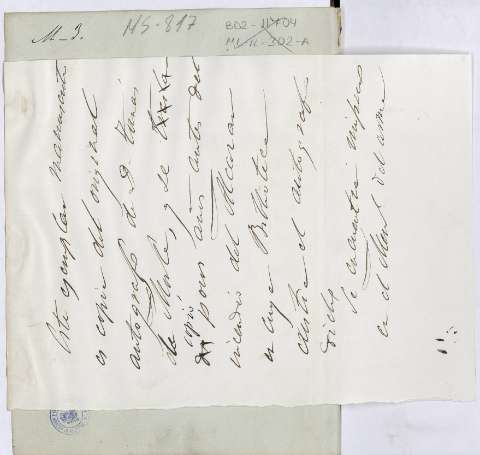 M-3.
MS-817
B02-11404
ML-11-302-A
Este ejemplar manuscrito
es copia del original
autógrafo de D. Tomás
de Morla, y se
copió
pocos años antes del
incendio del Alcázar
en cuya Biblioteca
existia el autógrafo
dicho
Se encuentra impreso
en el Mem.l del arma